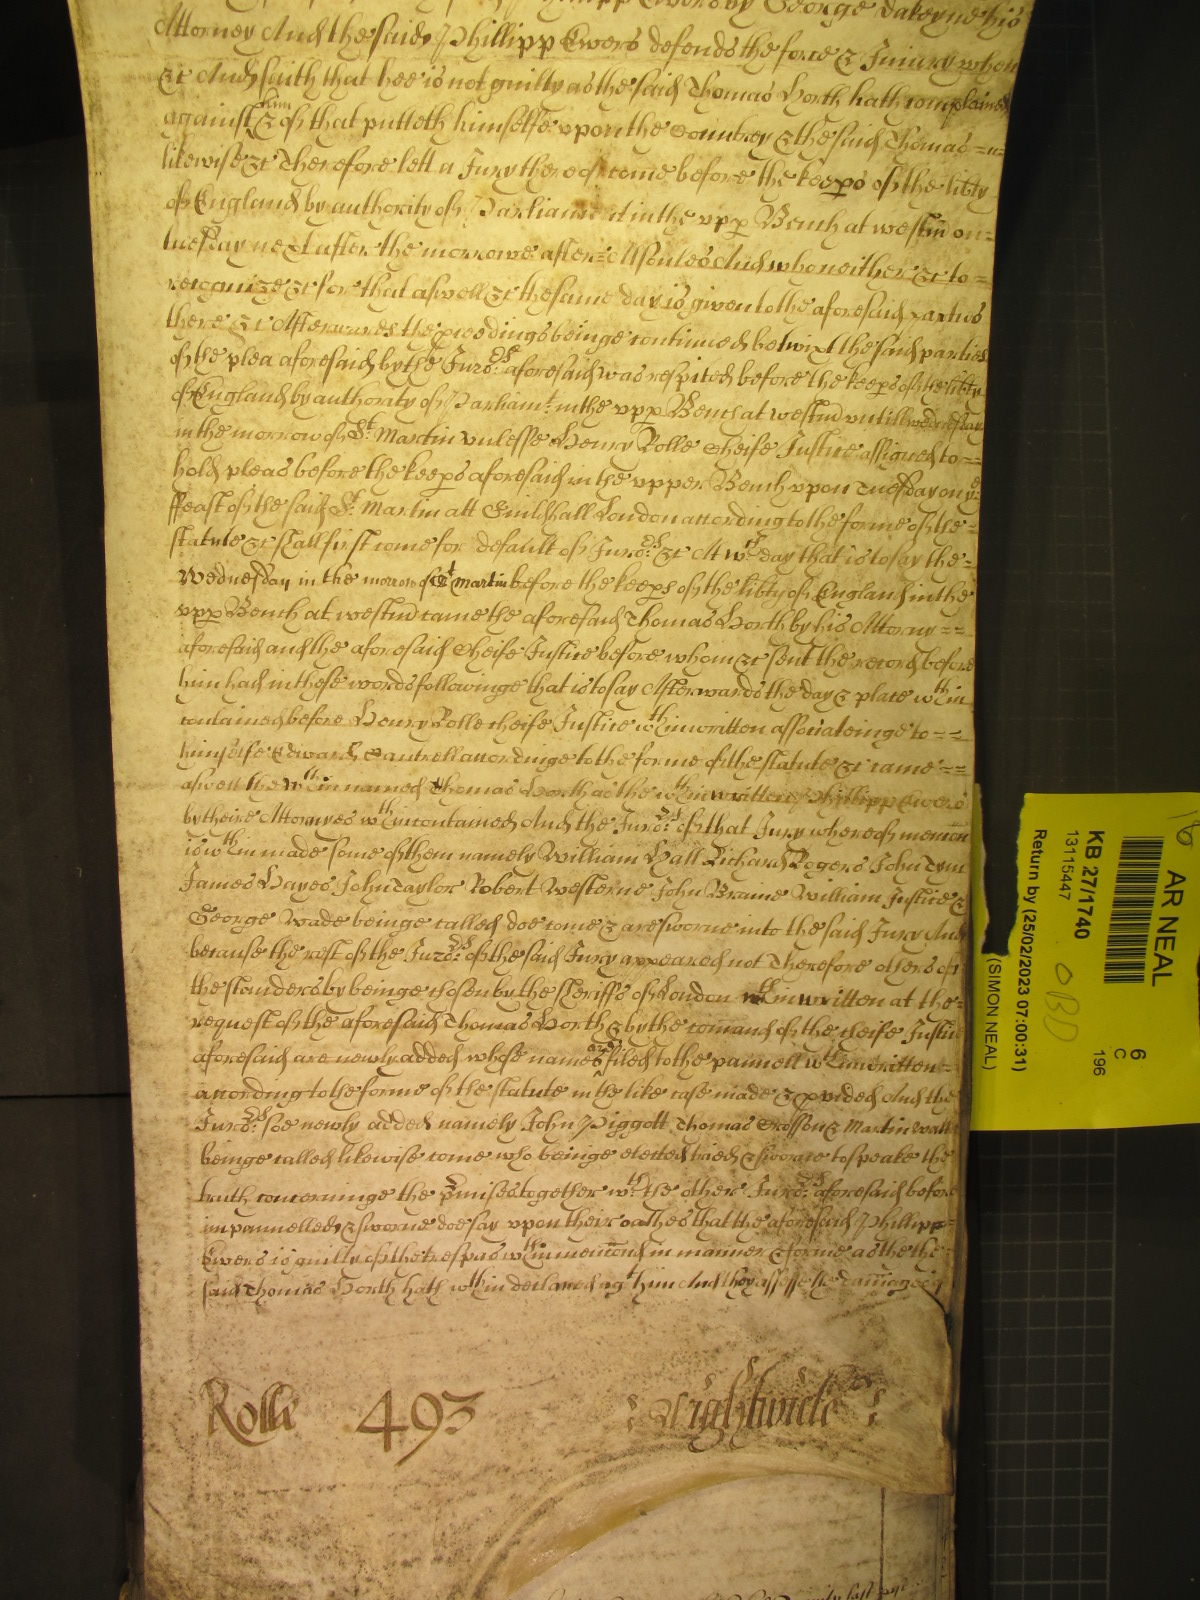 Phillipp Ewers by George Dakeyne his
Attorney And the said Phillipp Ewers defends the force & Iniury when
&c And saith that hee is not guilty as the said Thomas North hath complained
against him & of that putteth himselfe upon the Countrey & the said Thomas =
likewise &c Therefore lett a Jury thereof come before the keeps of the libty
of England by authority of Parliament in the upp Bench at westm on =
tuesday next after the morrowe after = All soules And who neither &c to =
recognize &c for that aswell &c the same day is given to the aforesaid parties
there &c Afterwards the pceedings beinge continued betwixt the said parties
of the plea aforesaid by the Juro:rs aforesaid was respited before the keeps of the libty
of England by authority of Parliamt: in the upp Bench at westm untill wednesday
in the morrow of St Martin unlesse Henry Rolle Cheife Justice assigned to =
hold pleas before the keeps aforesaid in the upper Bench upon tuesday on ye =
ffeast of the said St Martin att Guildhall London according to the forme of the =
statute &c shall first come for default of Juro:rs &c At wch day that is to say the =
Wednesday in the morrow of St Martin before the keeps of the libty of England in the
upp Bench at westm came the aforesaid Thomas North by his Attorny ==
aforesaid and the aforesaid Cheife Justice before whom &c sent the record before
him had in these words followinge that is to say Afterwards the day & place wthin
contained before Henry Rolle cheife Justice wthin written associateinge to ==
himselfe Edward Cantrell accordinge to the forme of the statute &c came ==
aswell the wthin named Thomas North as the wthin written Phillipp Ewers
by theire Attornyes wthin contained And the Juro:rs of that Jury whereof mencon
is wthin made some of them namely William Hall Richard Rogers John Tym
James Hayes John Taylor Robert Westerne John Braine William Justice &
George Wade beinge called doe come & are sworne into the said Jury And
because the rest of the Juro:rs of the said Jury appeared not Therefore others of
the standers by beinge chosen by the sheriffs of London wthin written at the =
request of the aforesaid Thomas North & by the comand of the cheife Justice
aforesaid are newly added whose names are filed to the pannell wthin written =
according to the forme of the statute in the like case made & pvided And the
Juro:rs soe newly added namely John Piggott Thomas Crosson & Martin Watt
beinge called likewise come who beinge elected tried & sworne to speake the
truth concerninge the pmises together wth the other Juro:rs aforesaid before
impannelled & sworne doe say upon their oathes that the aforesaid Phillipp =
Ewers is guilty of the trespas wthin menconed in manner & forme as the =
said Thomas North hath wthin declared agt him And they assesse the damages
Rolle 493 Wightwick
AR NEAL
KB 27/1740
13115447
Return by (25/02/2023 07:00:31)
(SIMON NEAL)
6
C
196